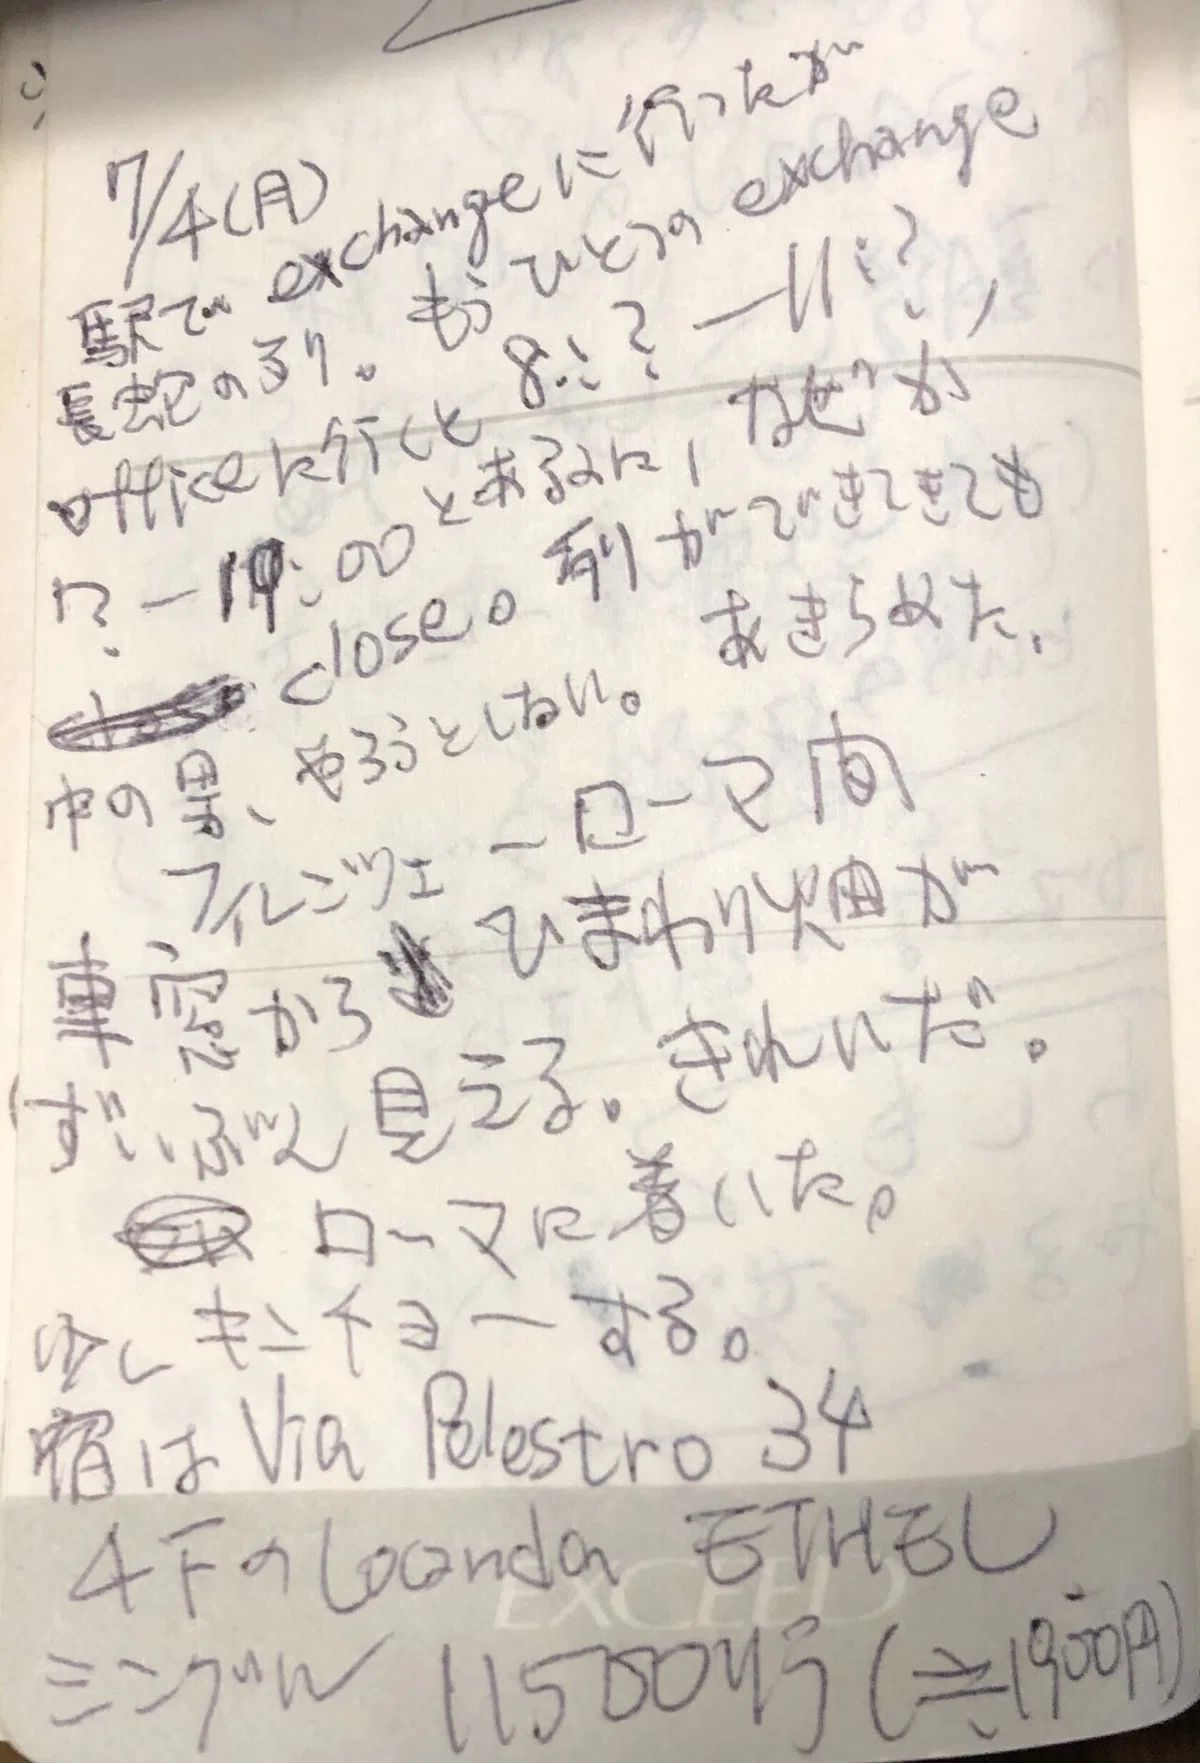 7/4(月)
駅で exchangeに行ったが
長蛇のれつ。もうひとつの exchange
officeに行くと 8:? ー 11:?,
? ー 19:00とあるのに, なぜか
close。列ができてきても
中の男、やろうとしない。 あきらめた.
フィレンツェ ー ローマ間
車窓から ひまわり畑が
ずいぶん見える。きれいだ。
ローマに着いた。
少しキンチョーする。
宿は Via Palestro 34
4FのLocanda ETHEL
シングル 11500リラ (≒1900円)
EXCEED